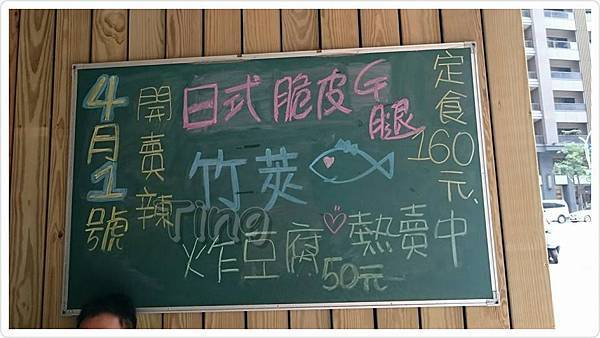 4月1號
開賣辣
日式脆皮G腿
竹莢
定食160元
炸豆腐
50元
熱賣中
Ting